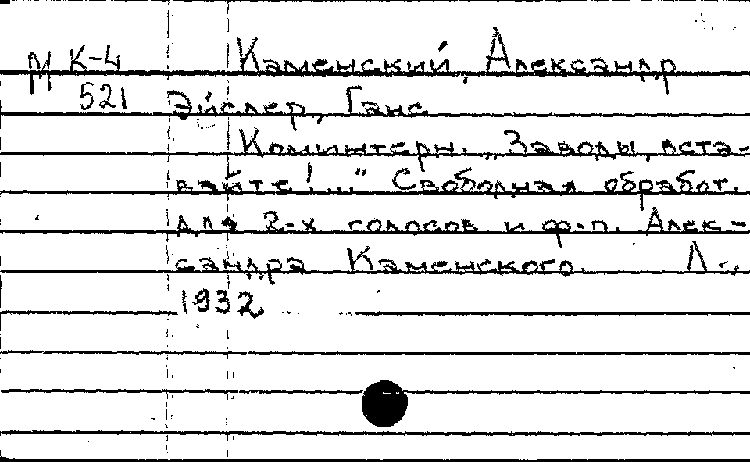 М К-4 Каменский, Александр
521 Эйслер, Ганс
Коминтерн. „Заводы, вста-
вайте!..." Свободная обработ.
для 2-х голосов и ф-п. Алек-
сандра Каменского. Л.,
1932